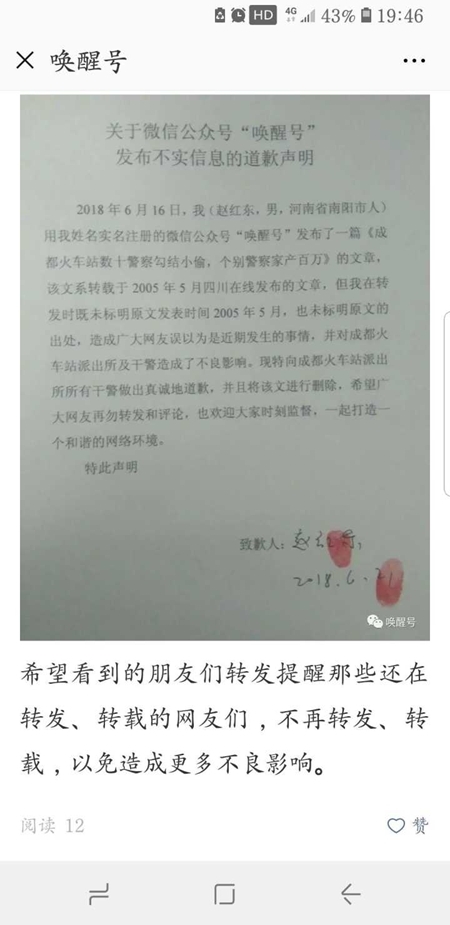 HD 4G 43% 19:46
唤醒号
关于微信公众号“唤醒号”
发布不实信息的道歉声明
2018年6月16日，我（赵红东，男，河南省南阳市人）
用我姓名实名注册的微信公众号“唤醒号”发布了一篇《成
都火车站数十警察勾结小偷，个别警察家产百万》的文章，
该文系转载于2005年5月四川在线发布的文章，但我在转
发时既未标明原文发表时间2005年5月，也未标明原文的
出处，造成广大网友误以为是近期发生的事情，并对成都火
车站派出所及干警造成了不良影响。现特向成都火车站派出
所所有干警做出真诚地道歉，并且将该文进行删除，希望广
大网友再勿转发和评论，也欢迎大家时刻监督，一起打造一
个和谐的网络环境。
特此声明
致歉人：赵红东
2018.6.21
唤醒号
希望看到的朋友们转发提醒那些还在
转发、转载的网友们，不再转发、转
载，以免造成更多不良影响。
阅读 12 赞